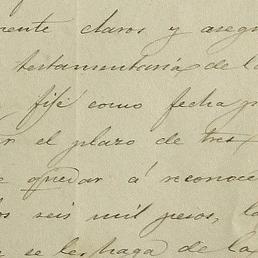 mente claros y aseg
testamentaría de l
fijé como fecha p
r el plazo de tres
e quedar a reconoce
los seis mil pesos, la
se les haga de la